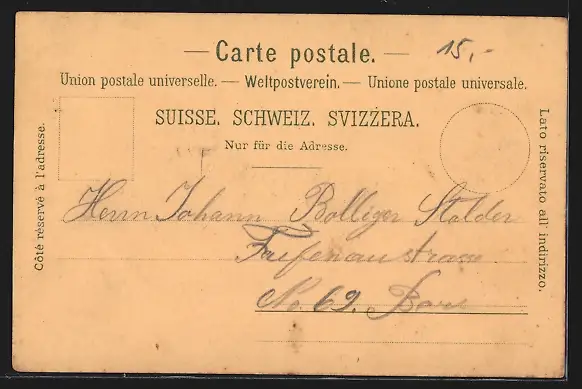 — Carte postale. —
15,-
Union postale universelle. — Weltpostverein. — Unione postale universale.
SUISSE. SCHWEIZ. SVIZZERA.
Nur für die Adresse.
Côté réservé à l'adresse.
Lato riservato all' indirizzo.
Herrn Johann Bolliger Stalder
No. 69.